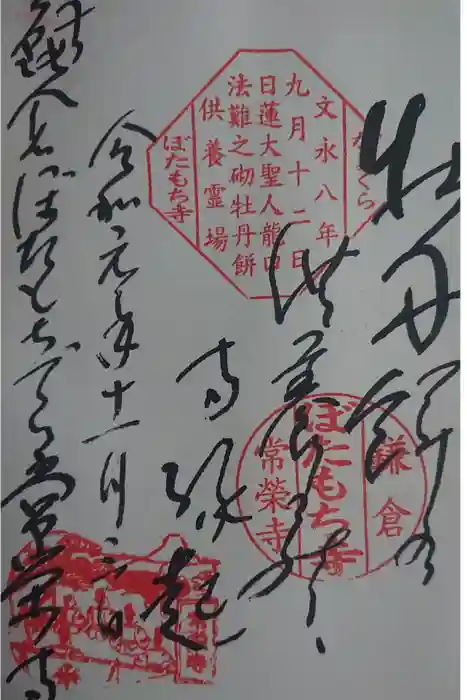 牡丹餅の
供養
寺縁起
令和元年十一月
鎌倉ぼたもちでら常栄寺
かまくら
文永八年
九月十二日
日蓮大聖人龍口
法難之砌牡丹餅
供養霊場
ぼたもち寺
鎌倉
ぼたもち寺
常榮寺